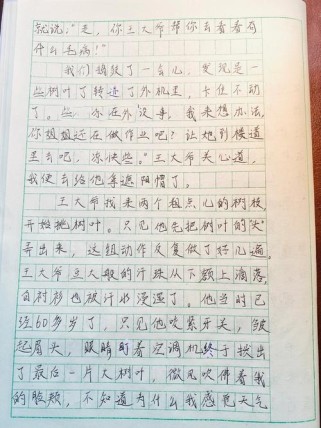 就说:"走,你王大爷帮你去看看有
什么毛病!"
我们捣鼓了一会儿,发现是一
些树叶了转进了外机里,卡住不动
了。“ 你在外没事,我来想办法,
你姐姐还在做作业吧?让她到楼道
里去吧,凉快些。"王大爷关心道,
我便去给他拿遮阳帽了。
王大爷找来两个粗点儿的树枝
开始挑树叶。只见他先把树叶的"尖"
弄出来,这组动作反复做了好几遍。
王大爷豆大般的汗珠从下额上滴落,
白衬衫也被汗水浸湿了。他当时已
经60多岁了,只见他咬紧牙关,皱
起眉头,眼睛盯着空调机终于找出
了最后一片大树叶,微风吹佛着我
的脸颊,不知道为什么我感觉天气